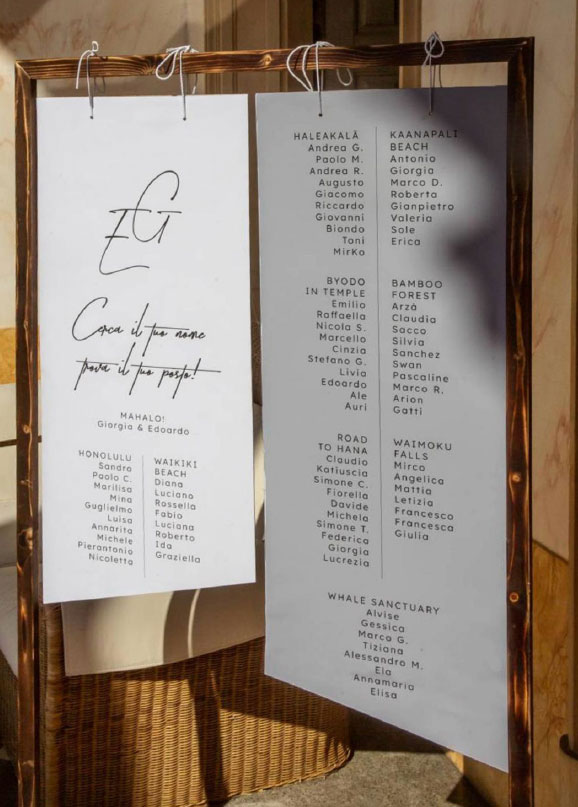 EG
Cerca il tuo nome
trova il tuo posto!
MAHALO!
Giorgia & Edoardo
HONOLULU
Sandro
Paolo C.
Marilisa
Mina
Guglielmo
Luisa
Annarita
Michele
Pierantonio
Nicoletta
WAIKIKI
BEACH
Diana
Luciano
Rossella
Fabio
Luciana
Roberto
Ida
Graziella
HALEAKALĀ
Andrea G.
Paolo M.
Andrea R.
Augusto
Giacomo
Riccardo
Giovanni
Biondo
Toni
MirKa
KAANAPALI
BEACH
Antonio
Giorgia
Marco D.
Roberta
Gianpietro
Valeria
Sole
Erica
BYODO
IN TEMPLE
Emilio
Raffaella
Nicola S.
Marcello
Cinzia
Stefano G.
Livia
Edoardo
Ale
Auri
BAMBOO
FOREST
Arzà
Claudia
Sacco
Silvia
Sanchez
Swan
Pascaline
Marco R.
Arion
Gatti
ROAD
TO HANA
Claudio
Katiuscia
Simone C.
Fiorella
Davide
Michela
Simone T.
Federica
Giorgia
Lucrezia
WAIMOKU
FALLS
Mirco
Angelica
Mattia
Letizia
Francesco
Francesca
Giulia
WHALE SANCTUARY
Alvise
Gessica
Marco G.
Tiziana
Alessandro M.
Eia
Annamaria
Elisa